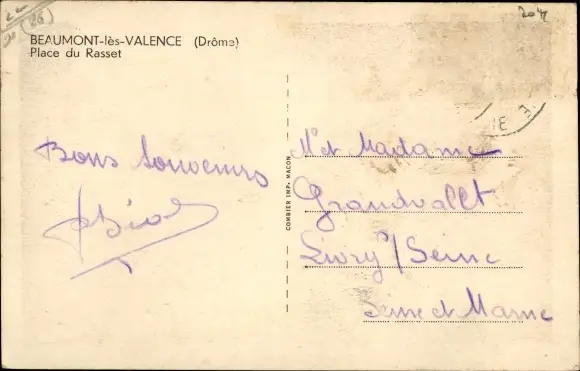 BEAUMONT-lès-VALENCE (Drôme)
Place du Rasset
Bons Souvenirs
COMBIER IMP. MACON
Mr et Madame
Grandvallet
Livry s/ Seine
Seine et Marne